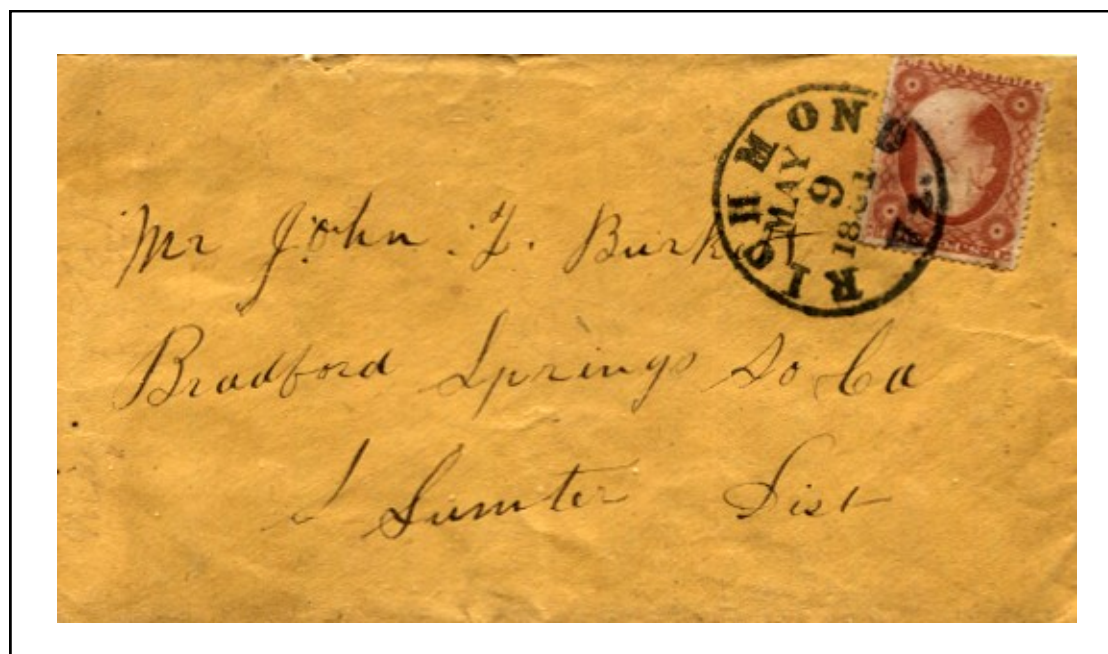 RICHMOND Va.
MAY
9
1861
Mr John
Bradford Springs So Ca
Sumter Dist